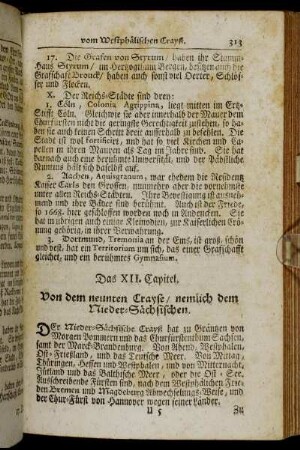 vom Westphälischen Crayß. 313
17. Die Grafen von Styrum / haben ihr Stamm-
Hauß Styrum / im Hertzogthum Bergen, besitzen auch die
Grafschafft Bronck / haben auch sonst viel Oerter, Schlös-
ser und Flecken.
X. Der Reichs-Städte sind drey:
1. Cöln, Colonia Agrippina, liegt mitten im Ertz-
Stiffte Cöln. Gleichwie sie aber innerhalb der Mauer dem
Churfürsten nicht die geringste Gerechtigkeit zustehet, so ha-
ben sie auch keinen Schritt breit ausserhalb zu befehlen. Die
Stadt ist wol fortificirt, und hat so viel Kirchen und Ca-
pellen in ihren Mauren als Tag im Jahre sind. In Cöln
ist auch noch eine berühmte Universität, und der Päbstliche
Nuntius hält sich daselbst auf.
2. Aachen, Aquisgranum, war ehedem die Residentz
Kayser Carls des Grossen, nunmehro aber die vornehmste
unter allen Reichs-Städten. Ihre Bottmäßigkeit ist ansehn-
liche und ihre Bäder sind berühmt. Auch ist der Friede,
so 1668. hier geschlossen worden noch in Andencken. Sie
hat im übrigen auch einige Kleinodien, zur Kaiserlichen Crö-
nung gehörig, in ihrer Verwahrung.
3. Dortmund, Tremonia an der Ems, ist groß, schön
und vest, hat ein Territorium um sich, das einer Grafschafft
gleichet, und ein berühmtes Gymnasium.
Das XII. Capitel.
Von dem neunten Crayse / nemlich dem
Nieder-Sächsischen.
DEr Nieder-Sächsische Crayß hat zu Gräntzen von
Morgen Pommern und das Churfürstenthum Sachsen,
samt der Marck-Brandenburg. Von Abend, Westphalen,
Ost-Frießland, und das Teutsche Meer. Von Mittag,
Thüringen, Hessen und Westphalen, und von Mitternacht,
Jütland und das Balthische Meer, oder die Ost-See.
Ausschreibende Fürsten sind, nach dem Westphälischen Frie-
den Bremen und Magdeburg Abwechselungs-Weise, und
der Chur-Fürst von Hannover wegen seiner Länder.
U 5 Zu